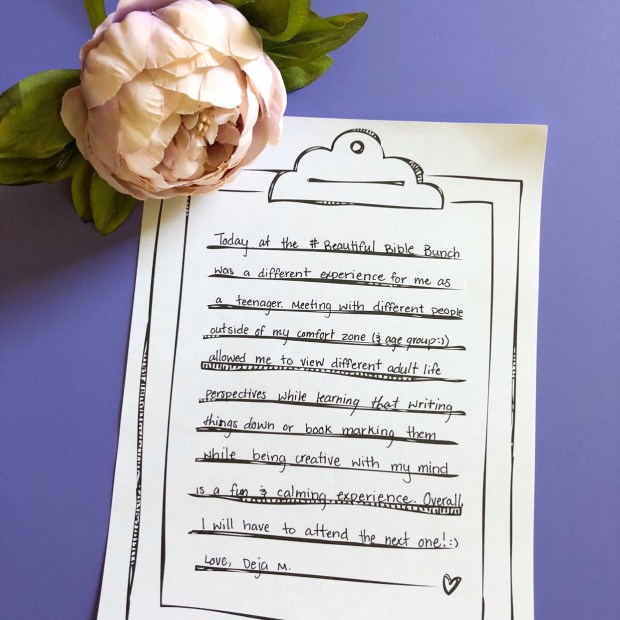 Today at the # Beautiful Bible Bunch
was a different experience for me as
a teenager. Meeting with different people
outside of my comfort zone (& age group:))
allowed me to view different adult life
perspectives while learning that writing
things down or book marking them
while being creative with my mind
is a fun & calming experience. Overall,
I will have to attend the next one!:)
Love, Deja M.